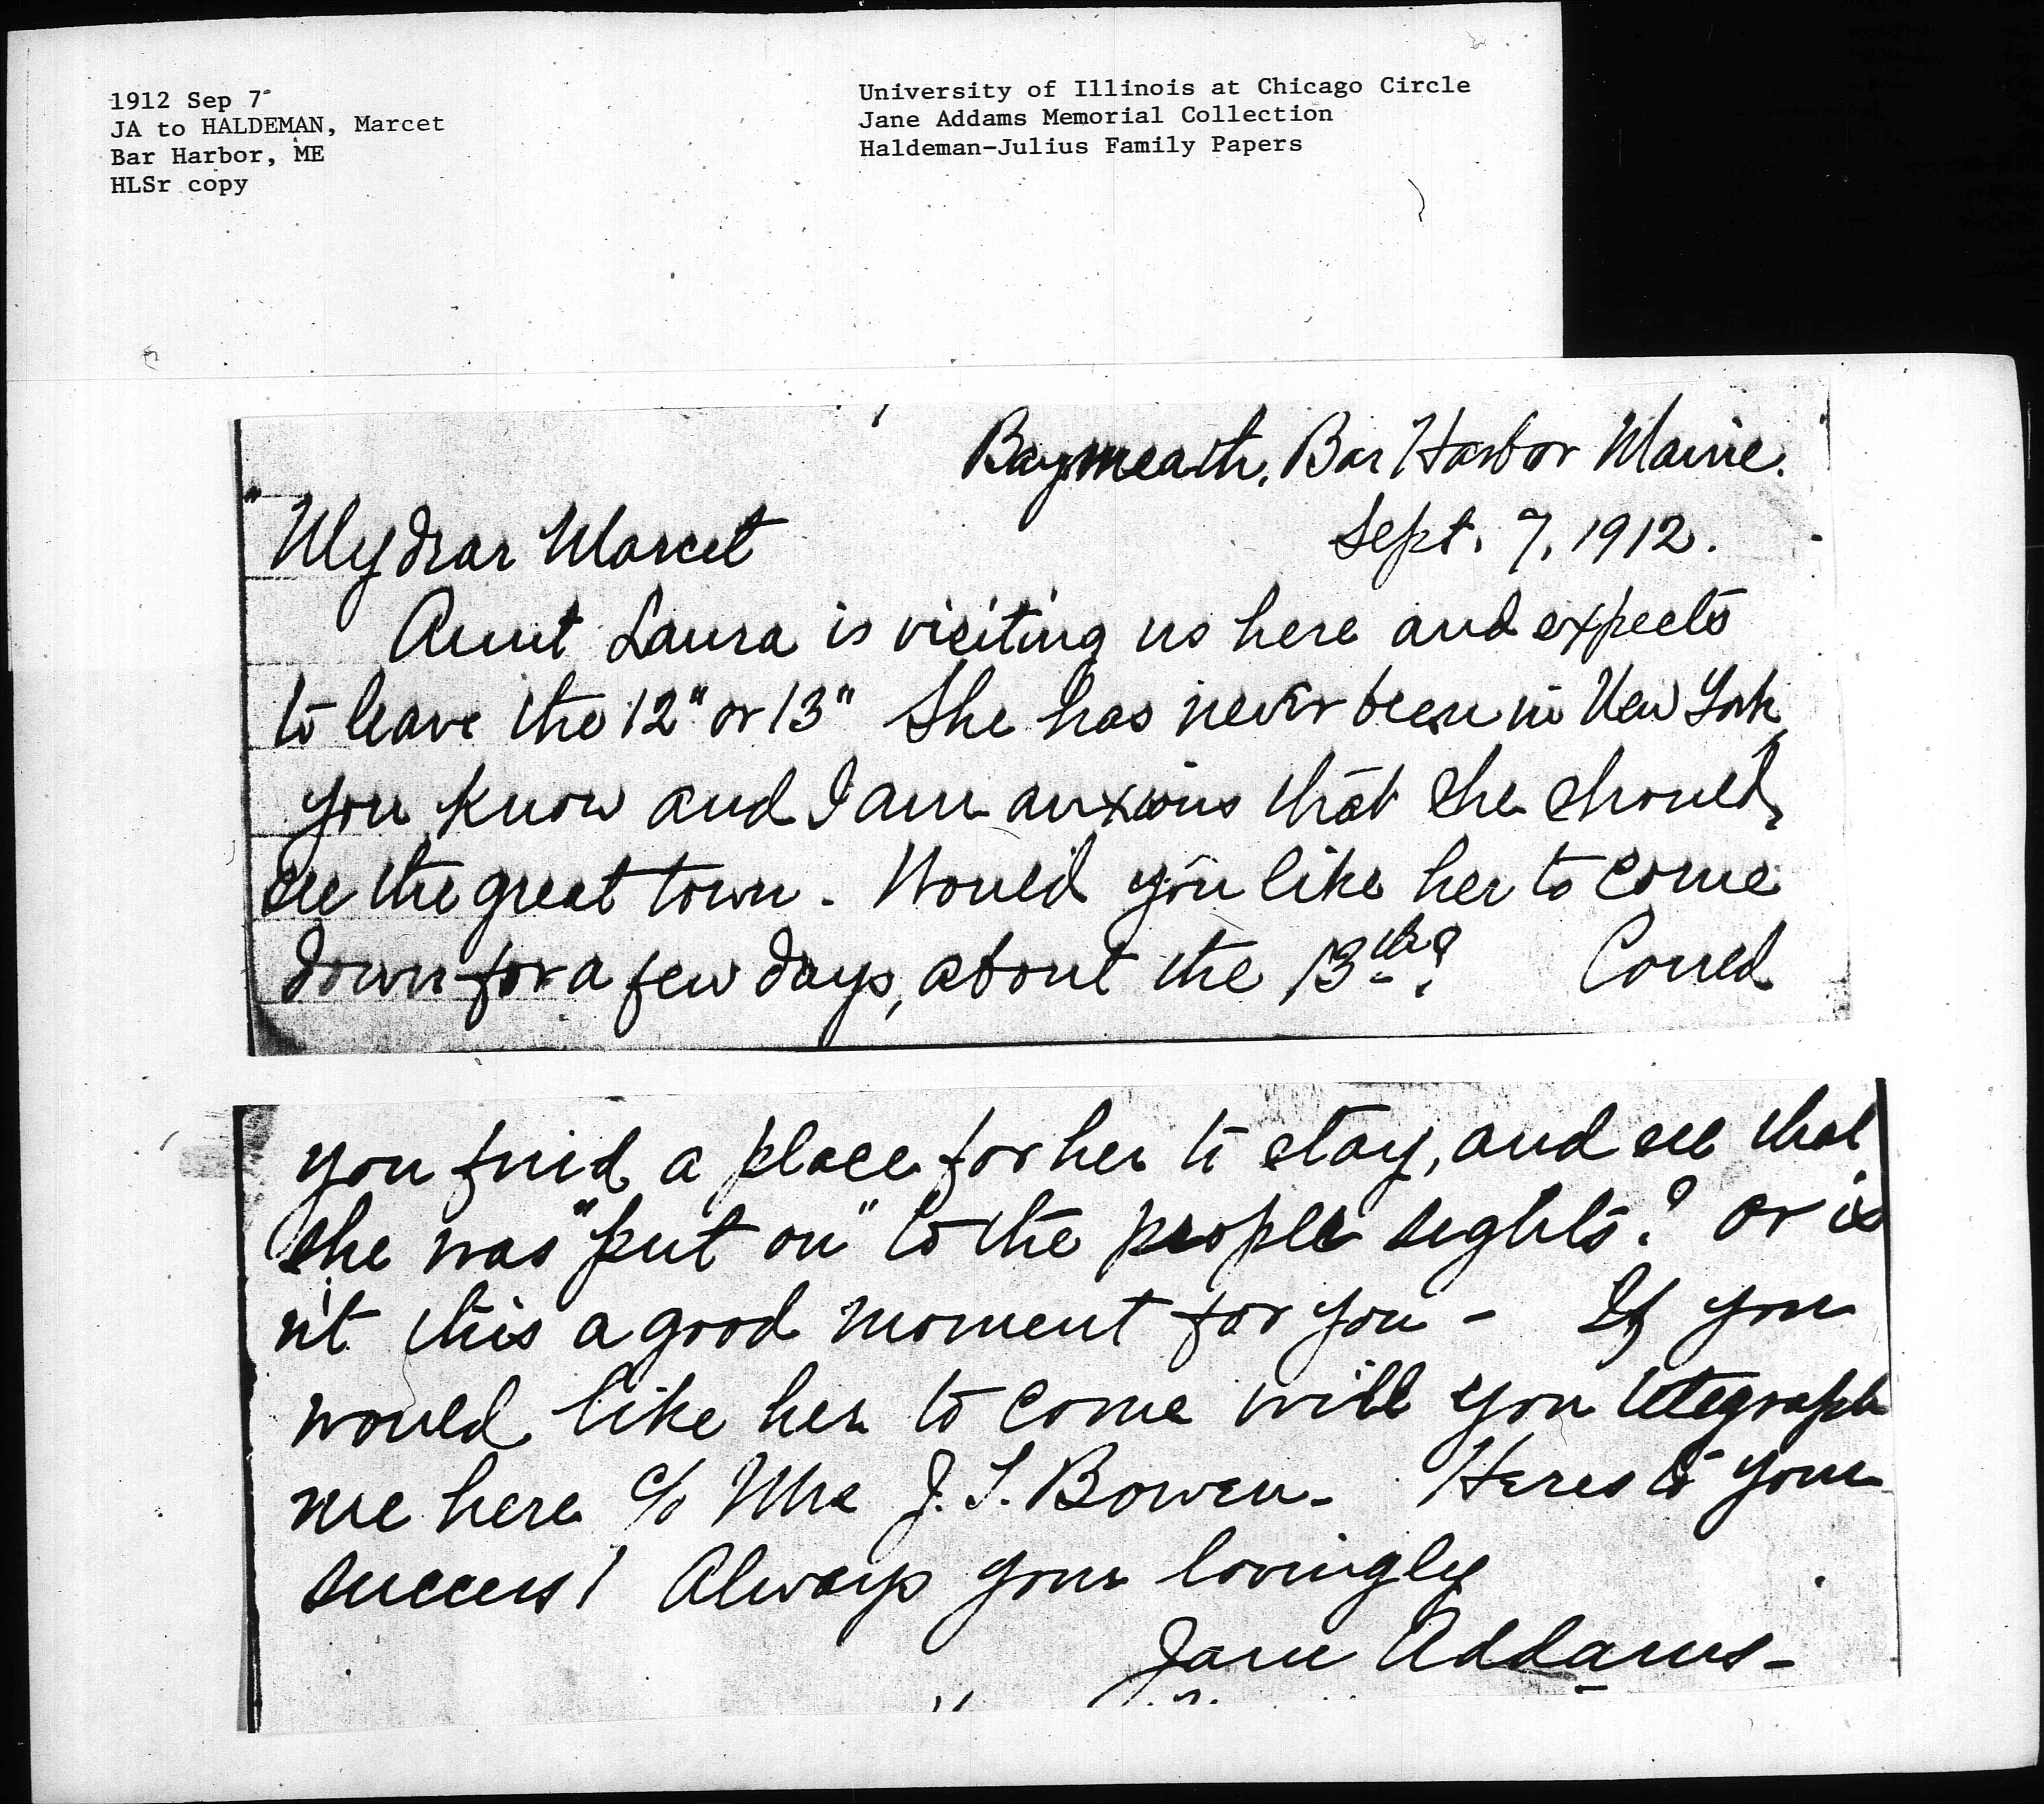 1912 Sep 7
JA to HALDEMAN, Marcet
Bar Harbor, ME
HLSr copy
University of Illinois at Chicago Circle
Jane Addams Memorial Collection
Haldeman-Julius Family Papers
Baymeath, Bar Harbor Maine.
Sept. 7, 1912.
"My dear Marcet
Aunt Laura is visiting us here and expects
to leave the 12" or 13" She has never been in New York,
you know and I am anxious that she should,
see the great town. Would you like her to come
down for a few days, about the 13th? Could
you find a place for her to stay, and see that
she was "put on" to the people sights? or is
n't this a good moment for you - If you
would like her to come will you telegraph
me here c/o Mrs J. T. Bowen - Heres to your
success! Always your lovingly
Jane Addams -